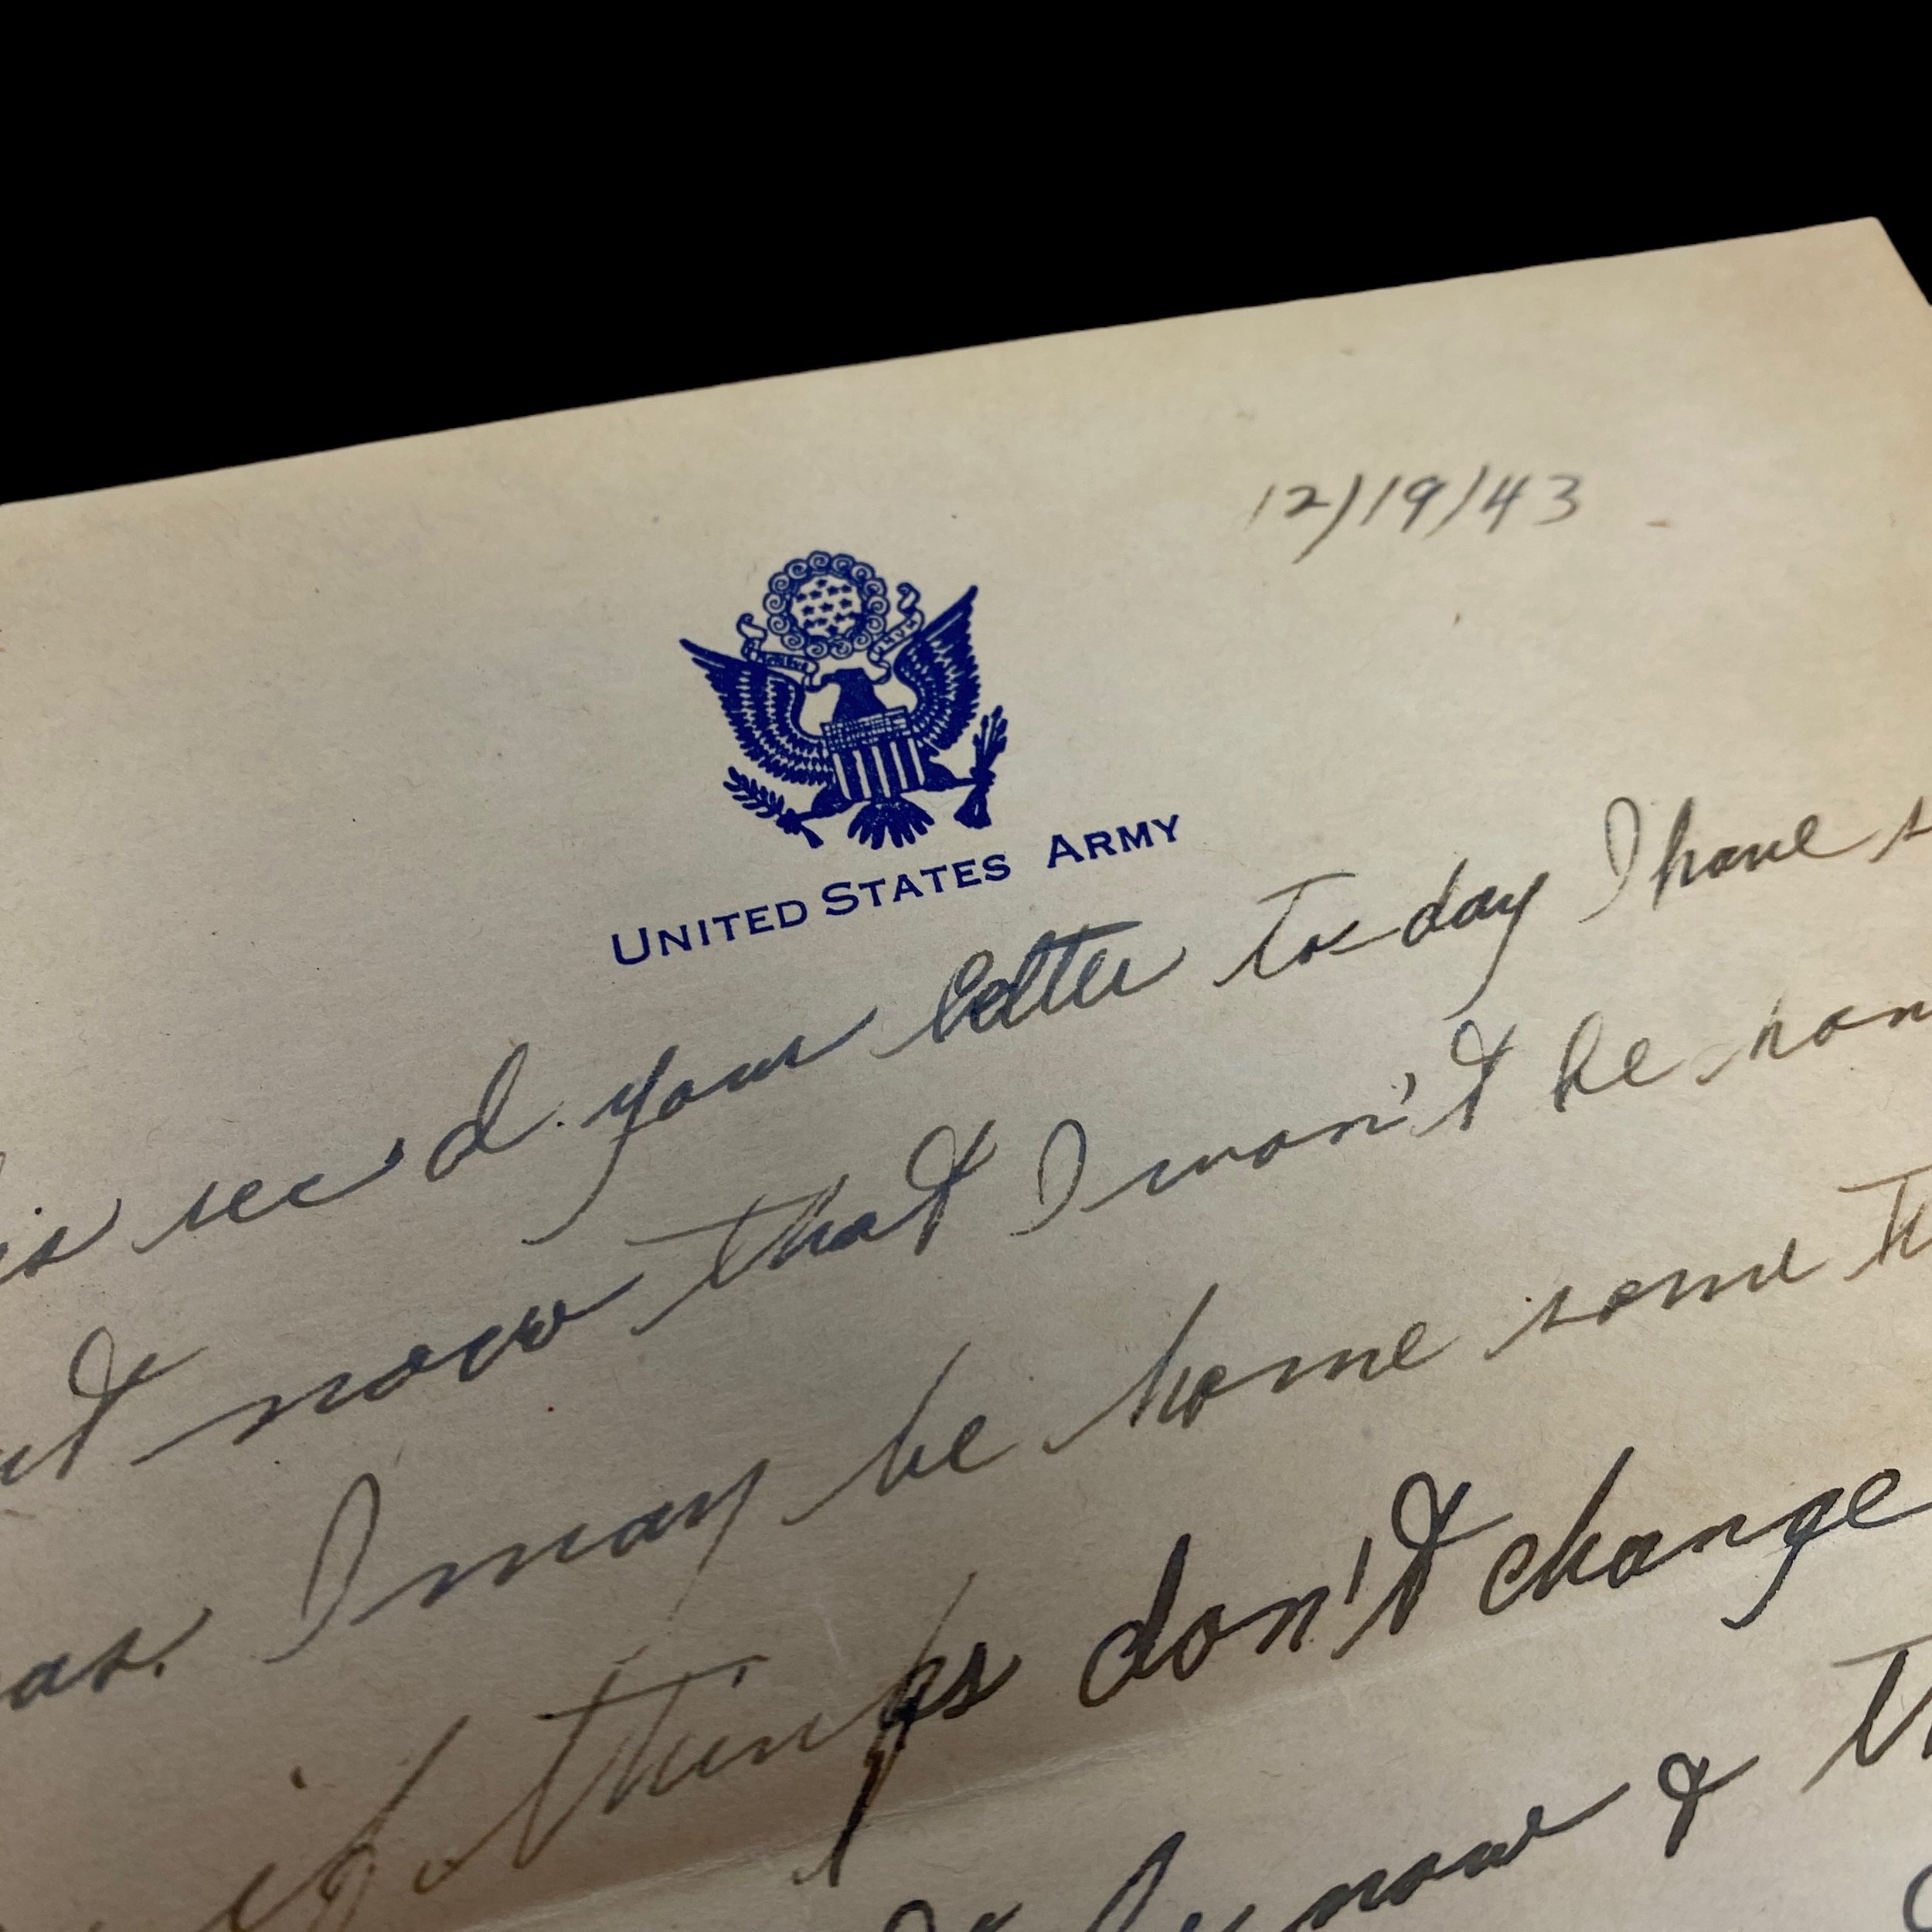 12/19/43
UNITED STATES ARMY
rec'd. your letter to-day I have
now that I won't be
I may be home some
if things don't change
now &